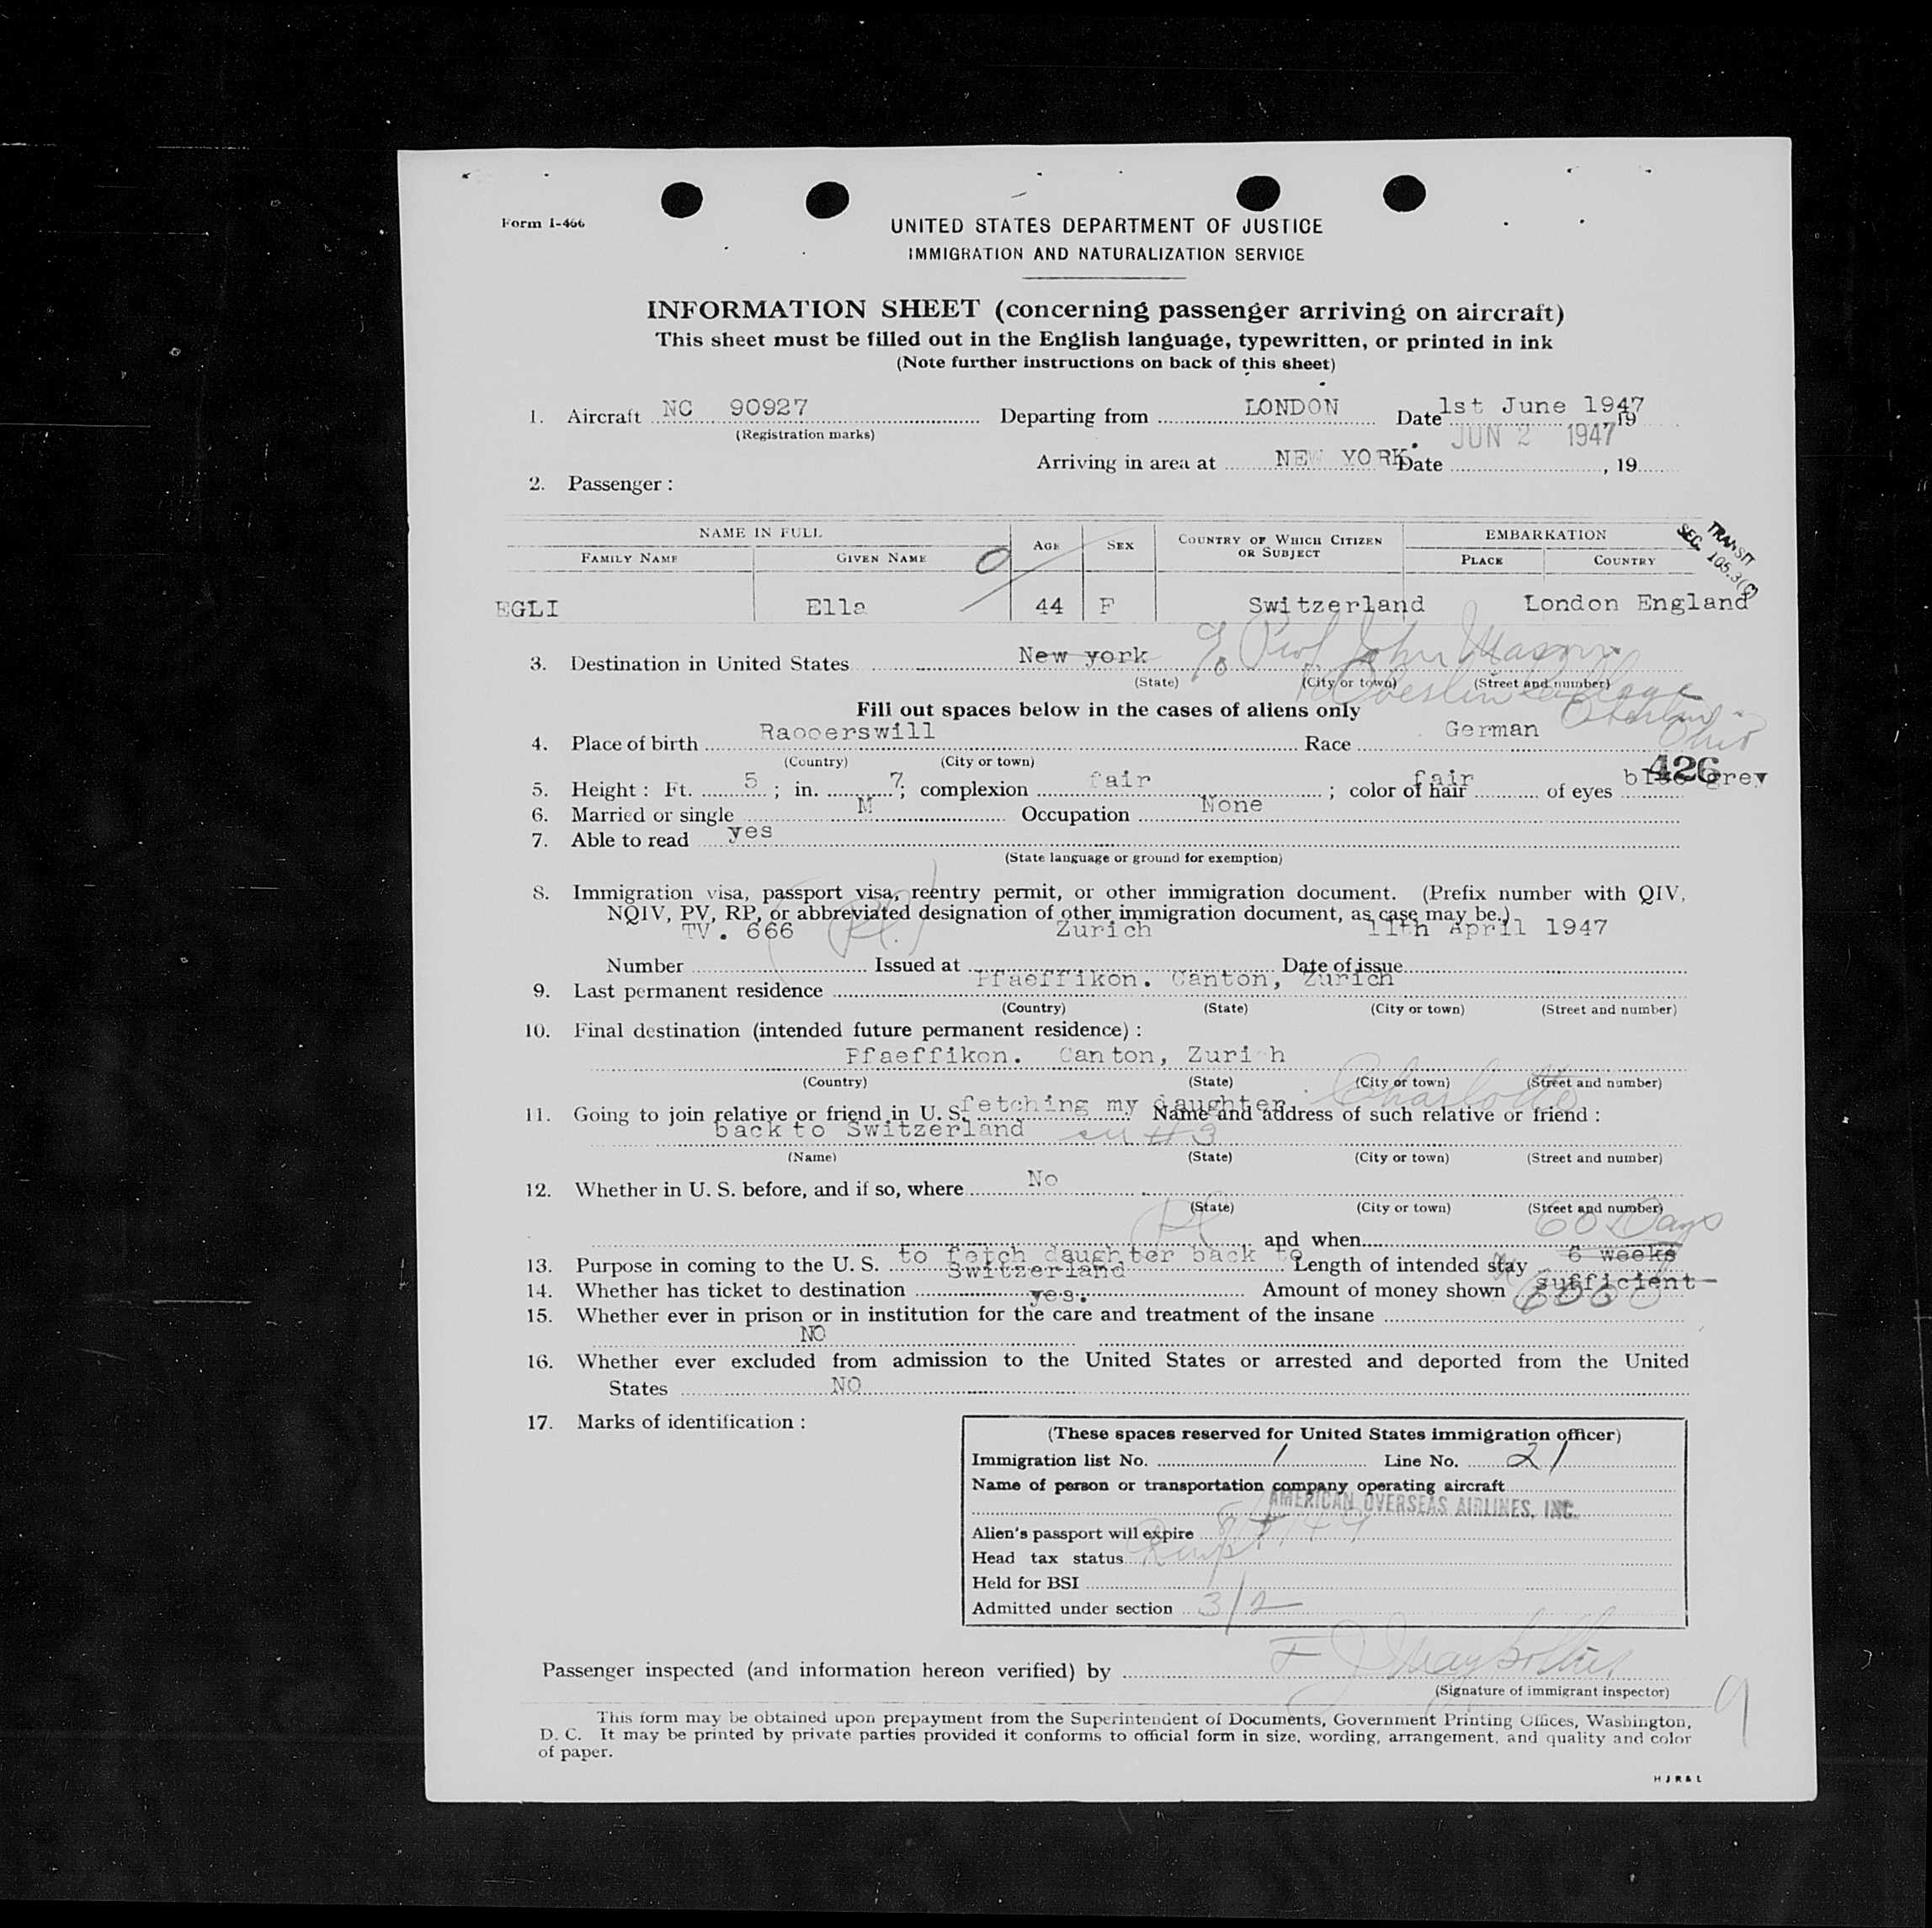 Form I-466
UNITED STATES DEPARTMENT OF JUSTICE
IMMIGRATION AND NATURALIZATION SERVICE
INFORMATION SHEET (concerning passenger arriving on aircraft)
This sheet must be filled out in the English language, typewritten, or printed in ink
(Note further instructions on back of this sheet)
1. Aircraft NC 90927 Departing from LONDON Date 1st June 1947, 19
(Registration marks)
JUN 2 1947
Arriving in area at NEW YORK. Date , 19
2. Passenger:
NAME IN FULL AGE SEX COUNTRY OF WHICH CITIZEN OR SUBJECT EMBARKATION
FAMILY NAME GIVEN NAME PLACE COUNTRY
TRANSIT
SEC. 105.3
EGLI Ella 44 F Switzerland London England
3. Destination in United States New york % Prof John Mason
(State) (City or town) (Street and number)
Oberlin College
Oberlin
Ohio
Fill out spaces below in the cases of aliens only
4. Place of birth Rapperswill Race German
(Country) (City or town)
426
5. Height: Ft. 5; in. 7; complexion fair; color of hair fair of eyes blue grey
6. Married or single M Occupation None
7. Able to read yes
(State language or ground for exemption)
8. Immigration visa, passport visa, reentry permit, or other immigration document. (Prefix number with QIV,
NQIV, PV, RP, or abbreviated designation of other immigration document, as case may be.)
TV. 666 (Pl.) Zurich 11th April 1947
Number Issued at Date of issue
9. Last permanent residence Pfaeffikon. Canton, Zurich
(Country) (State) (City or town) (Street and number)
10. Final destination (intended future permanent residence):
Pfaeffikon. Canton, Zurich
(Country) (State) (City or town) (Street and number)
11. Going to join relative or friend in U. S. fetching my daughter Charlotte Name and address of such relative or friend:
back to Switzerland su #3
(Name) (State) (City or town) (Street and number)
12. Whether in U. S. before, and if so, where No
(State) (City or town) (Street and number)
Pl and when 60 Days
13. Purpose in coming to the U. S. to fetch daughter back to Switzerland Length of intended stay 6 weeks
14. Whether has ticket to destination yes. Amount of money shown sufficient
15. Whether ever in prison or in institution for the care and treatment of the insane
NO
16. Whether ever excluded from admission to the United States or arrested and deported from the United
States NO
17. Marks of identification:
(These spaces reserved for United States immigration officer)
Immigration list No. 1 Line No. 21
Name of person or transportation company operating aircraft
AMERICAN OVERSEAS AIRLINES, INC.
Alien's passport will expire
Head tax status
Held for BSI
Admitted under section 3/2
Passenger inspected (and information hereon verified) by
(Signature of immigrant inspector)
9
This form may be obtained upon prepayment from the Superintendent of Documents, Government Printing Offices, Washington,
D. C. It may be printed by private parties provided it conforms to official form in size, wording, arrangement, and quality and color
of paper.
H J R & L